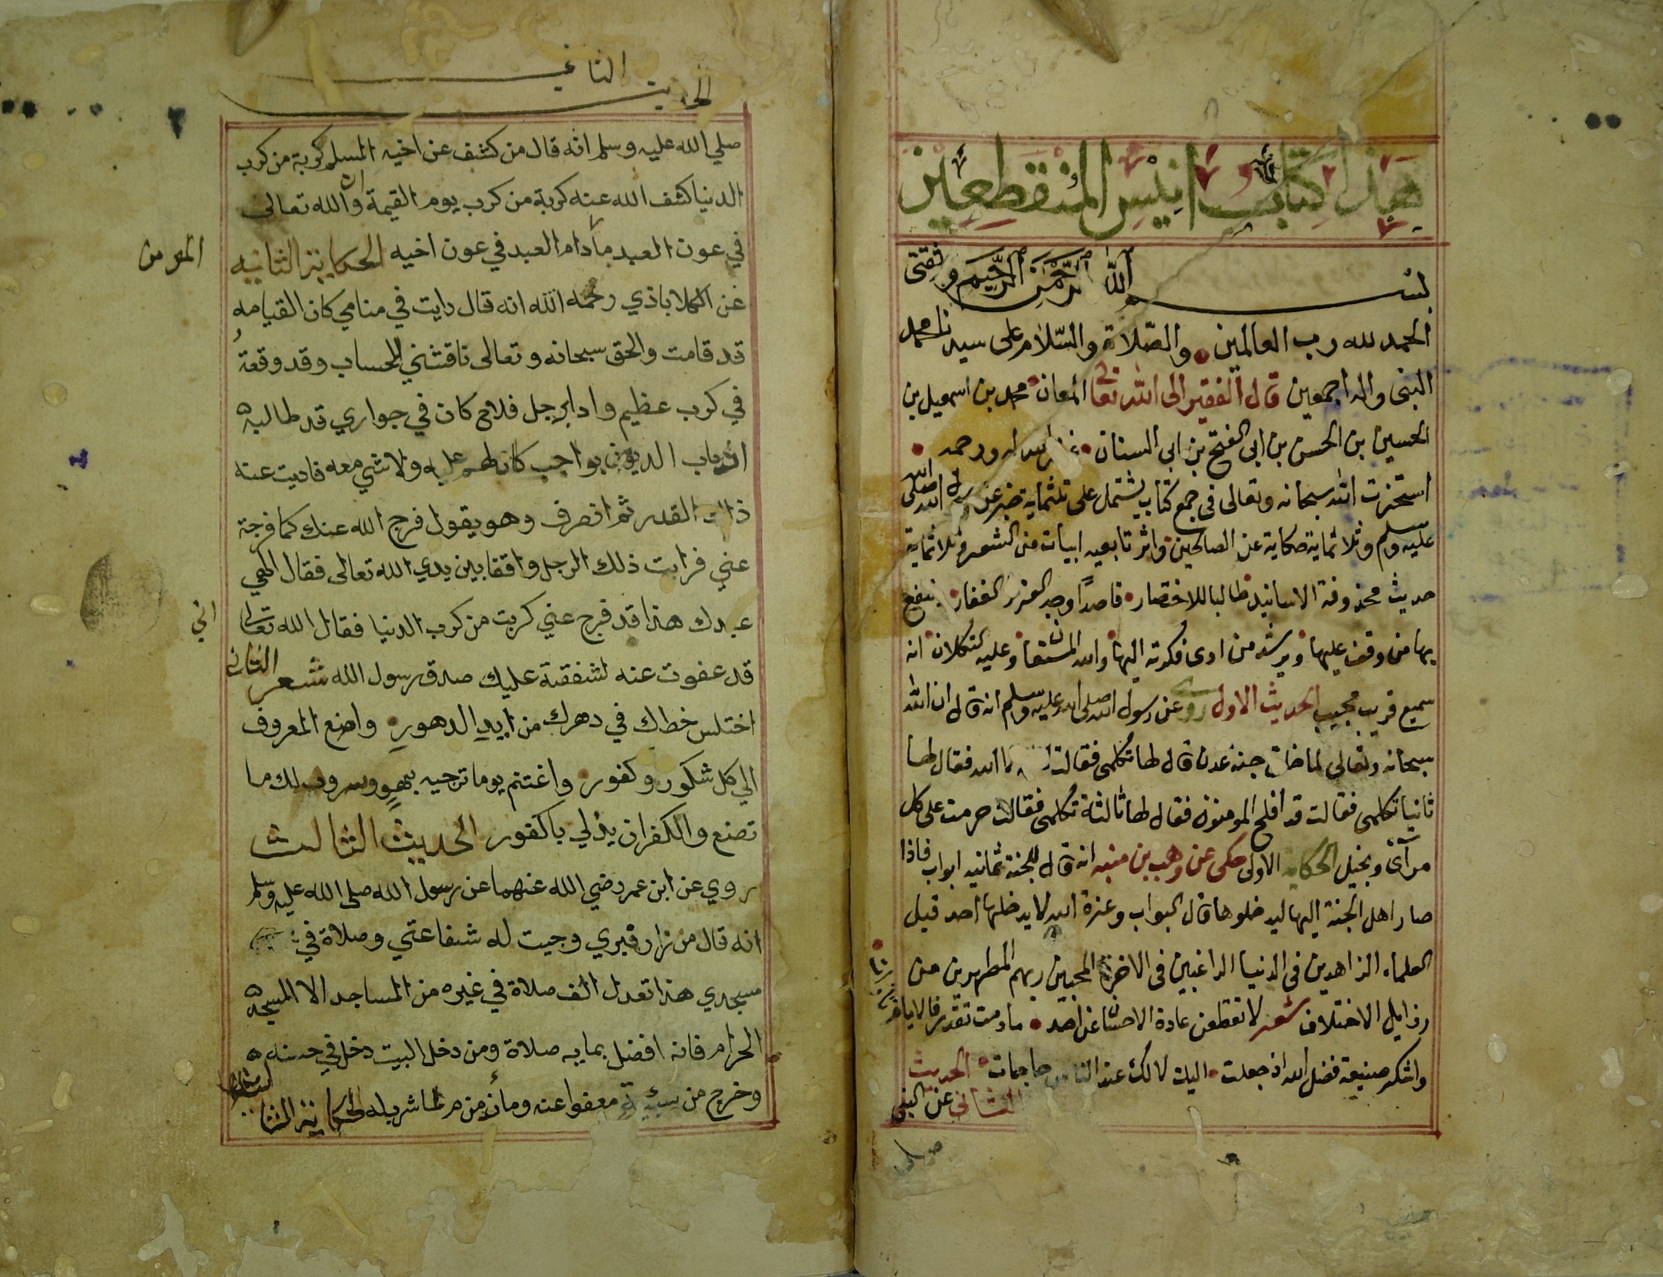 هذا كتاب انيس المنقطعين
بسم الله الرحمن الرحيم وثقتي
الحمد لله رب العالمين والصلاة والسلام على سيدنا محمد
النبى واله اجمعين قال الفقير الى الله تعالى المعان محمد بن اسمعيل بن
الحسين بن الحسن بن ابى الفتح بن ابى السنان غفر الله له ورحمه
استخرت الله سبحانه وتعالى فى جمع كتاب يشتمل على تلثماية خبر عن رسول الله صلى الله
عليه وسلم وثلاثماية حكاية عن الصالحين واثر تابعيه ابيات من الشعر ثلاثماية
حديث محذوفة الاسانيد طالبا للاختصار قاصدًا وجه العزيز الغفار ينفع
بها من وقف عليها ويرشد من ادى فكرته اليها والله المستعان وعليه التكلان انه
سميع قريب مجيب الحديث الاول روى عن رسول الله صلى الله عليه وسلم انه قال ان الله
سبحانه وتعالى لما خلق جنة عدن قال لها تكلمى فقالت لا اله الا الله فقال لها
ثانيا تكلمى فقالت قد افلح المومنون فقال لها ثالثة تكلمى فقالت حرمت على كل
مرآئ وبخيل الحكاية الاولى حكى عن وهب بن منبه انه قال للجنة ثمانيه ابواب فاذا
صار اهل الجنة اليها ليدخلوها قال البواب وعزة الله لا يدخلها احد قبل
العلماء الزاهدين فى الدنيا الراغبين فى الاخرة المحبين ربهم المطهرين من
رذايل الاختلاف شعر لا تقطعن عادة الاحسان عن احد ما دمت تقدر فالايام تارات
واشكر صنيعة فضل الله اذ جعلت اليك لا لك عند الناس حاجات الحديث
الثانى عن النبى
صلى
الحديث الثاني
صلي الله عليه وسلم انه قال من كشف عن اخيه المسلم كربة من كرب
الدنيا كشف الله عنه كربة من كرب يوم القيمة وان الله تعالى
في عون العبد ما دام العبد في عون اخيه الحكاية الثانيه
المومن
عن الكلاباذي رحمه الله انه قال رايت في منامي كان القيامه
قد قامت والحق سبحانه وتعالى ناقشني للحساب وقد وقعة
في كرب عظيم واذا برجل فلاح كان في جواري قد طالبه
ارباب الديون بواجب كان لهم عليه ولا شي معه فاديت عنه
ذلك القدر ثم انصرف وهو يقول فرج الله عنك كما فرجة
عني فرايت ذلك الرجل واقفا بين يدي الله تعالى فقال الهي
عبدك هذا قد فرج عني كربت من كرب الدنيا فقال الله تعالى
اني
قد عفوت عنه لشفقة عليك صدق رسول الله شعر الثاني
اختلس خطاك في دهرك من ايدي الدهور واضع المعروف
الي كل شكور وكفور واغتنم يوما ترجيه بهو وسرور لك ما
تصنع والكفران يذلي باكفور الحديث الثالث
روي عن ابن عمر رضي الله عنهما عن رسول الله صلى الله عليه وسلم
انه قال من زار قبري وجبت له شفاعتي وصلاة في
مسجدي هذا تعدل الف صلاة في غيره من المساجد الا المسجد
الحرام فانه افضل بمايه صلاة ومن دخل البيت دخل في حسنه
وخرج من سيئة معفوا عنه وماء زمزم لما شرب له الحكاية الثا